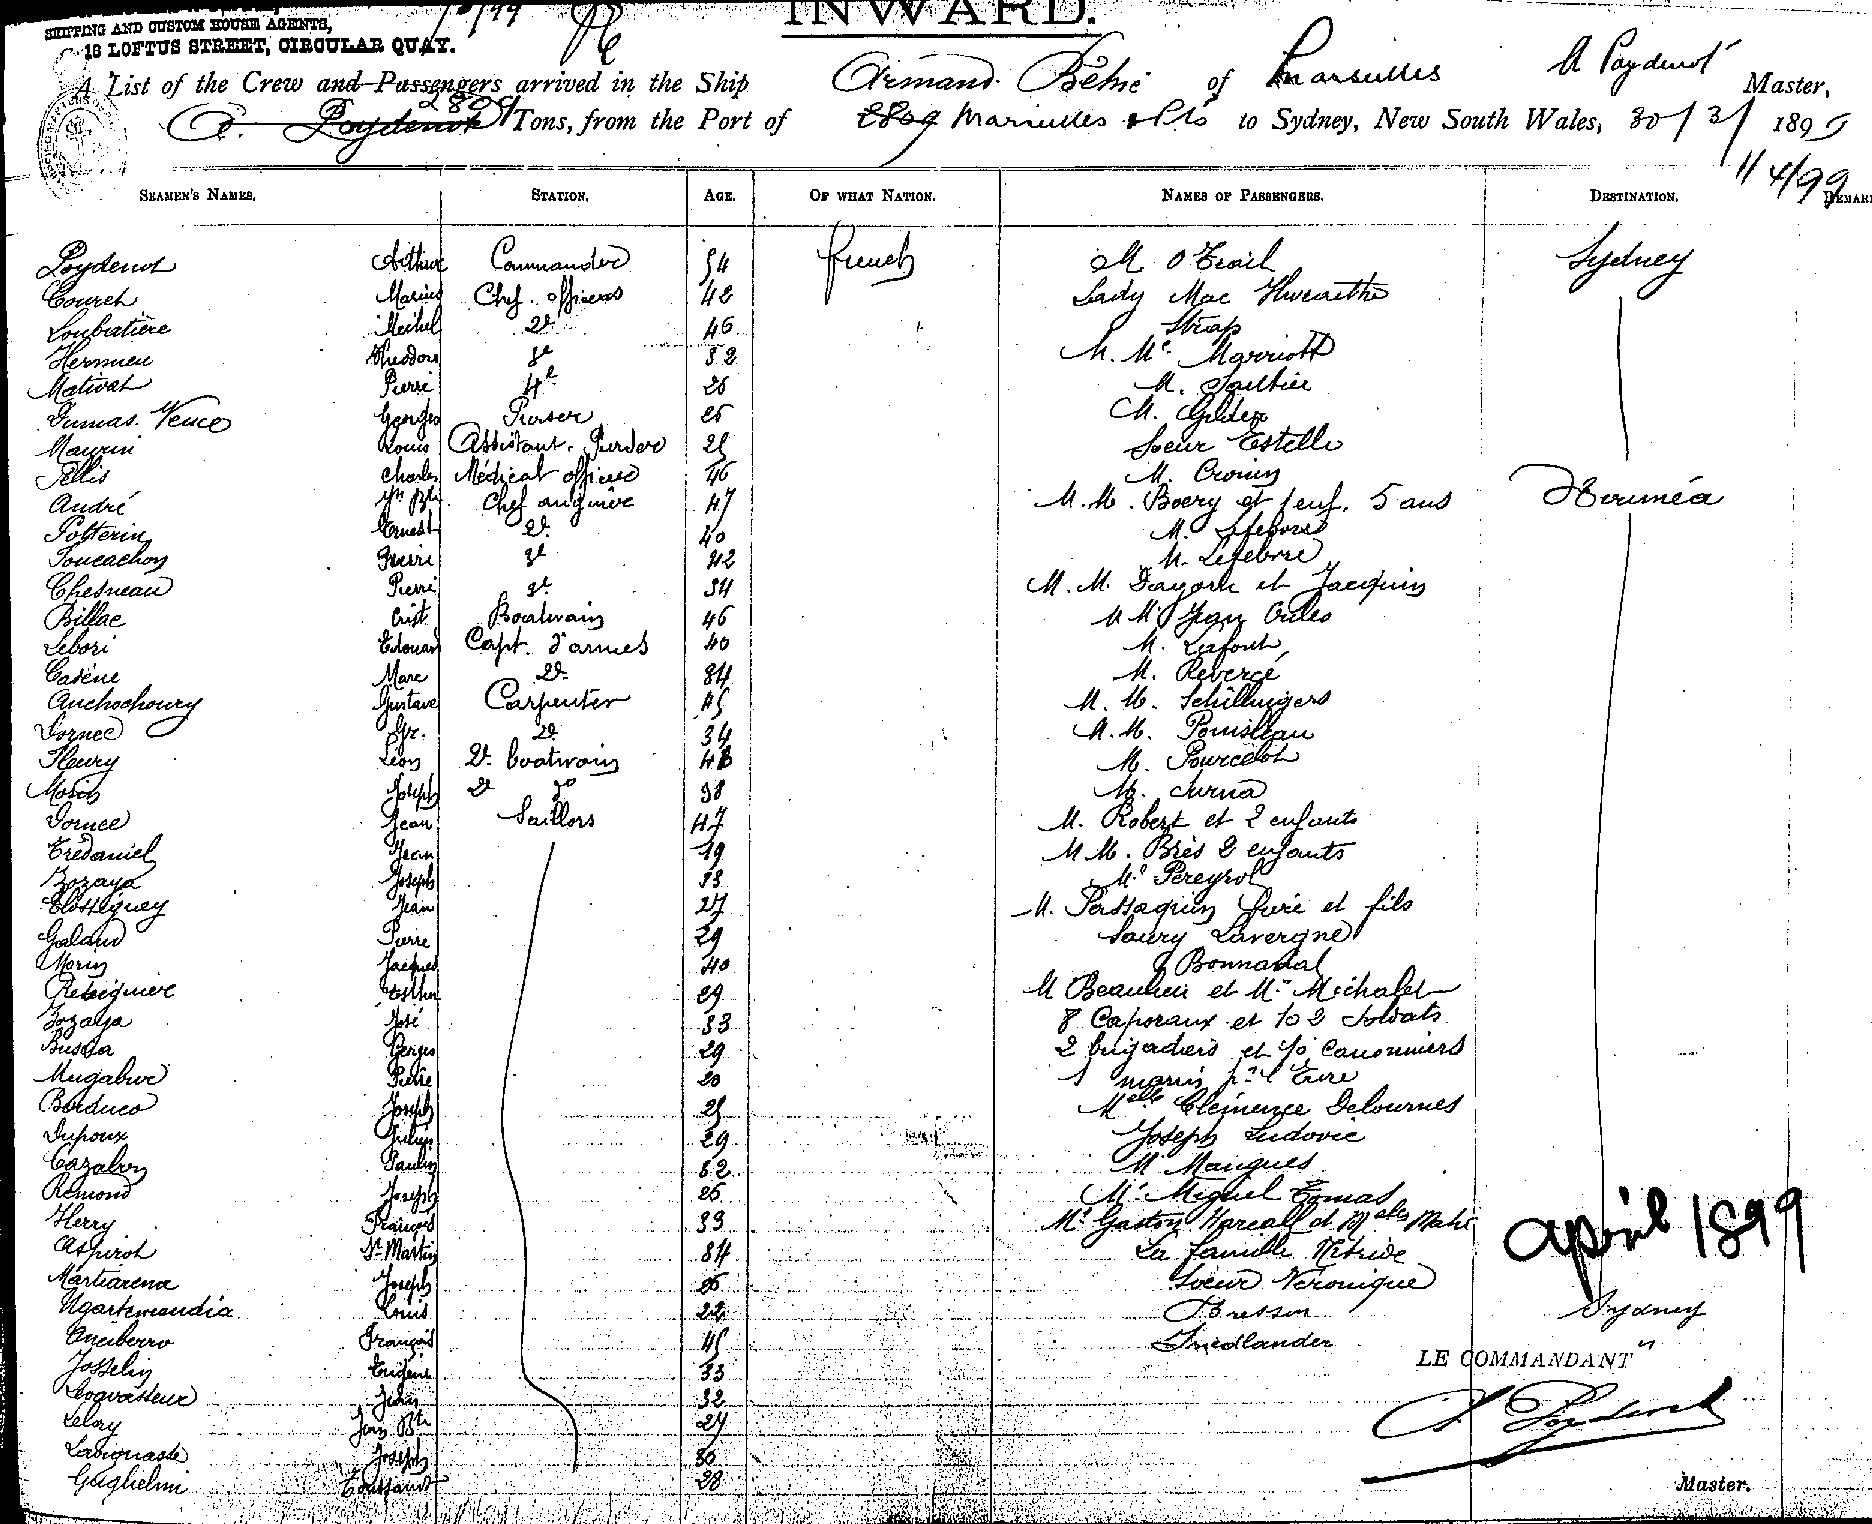 INWARD.
SHIPPING AND CUSTOM HOUSE AGENTS,
18 LOFTUS STREET, CIRCULAR QUAY.
A List of the Crew and Passengers arrived in the Ship Armand Béhic of Marseilles A Poydenot Master,
A. Poydenot 2809 Tons, from the Port of 2809 Marseilles & Pts to Sydney, New South Wales, 30/3/ 1899
1/4/99
SEAMEN'S NAMES. STATION. AGE. OF WHAT NATION. NAMES OF PASSENGERS. DESTINATION.
Poydenot Arthur Commander 54 french M O'Trail Sydney
Couret Marius Chef officers 42 Lady Mac
Loubatière Michel 2d 46 Strap
Hermieu Theodore 3d 32 M. Me Marriott
Mativat Pierre 4th 26 M. Gaultier
Dumas Vence Georges Purser 25 M.
Maurin Louis Assistant Purser 25 Soeur Estelle
Pellis Charles Médical officer 46 M. Cronin
André Jn Bte Chef 47 M. M. Boery et 1 enf. 5 ans Nouméa
Potterin Ernest 2d 40 M. Lefebvre
Toucachou Pierre 3d 42 M. Lefebvre
Chesneau Pierre 3d 34 M. M. et Jacquin
Billac Crist. Boatwain 46 M M Jean
Lebori Edouard Capt. d'armes 40 M. Lafont
Cadène Marc 2d 34 M. Revergé
Anchochoury Gustave Carpenter 45 M. M. Schillingers
Dornec Gr. 2d 34 M. M. Pouisleau
Fleury Léon 2d boatwain 43 M. Pourcelot
Morin Joseph 2d do 38 M.
Dornec Jean Saillors 47 M. Robert et 2 enfants
Trédaniel Jean 19 M M. Brès 2 enfants
Zozaya Joseph 33 Me Pereyrol
Elosseguey Jean 27 M. Passaquin et fils
Galand Pierre 29 Soury Lavergne
Morin Jacques 40 Bonnaval
29 M Beaulieu et Me Michalet
Zozaya José 33 8 Caporaux et 102 Soldats
Georges 29 2 brigadiers et 10 Canonniers
Mugabure Pierre 20 1 marin pr l'Eure
Borduco Joseph 25 Melle Clémence Delournes
Dupoux Julien 29 Joseph Ludovic
Cazabon Paulin 32 M Mangues
Remond Joseph 26 Mr Miguel Tomas
Herry François 39 Mr Gaston
Aspirot St Martin 34 La famille
Martiarena Joseph 26 Soeur Véronique
April 1899
Ugartemendia Louis 22 Bresson Sydney
Anciberro François 45 Friedlander "
Josselin Eugène 33 LE COMMANDANT
Locvasseur Jean 32 A Poydenot
Leloy Jean Bte 27
Joseph 30
Guglielmi Toussaint 28 Master.